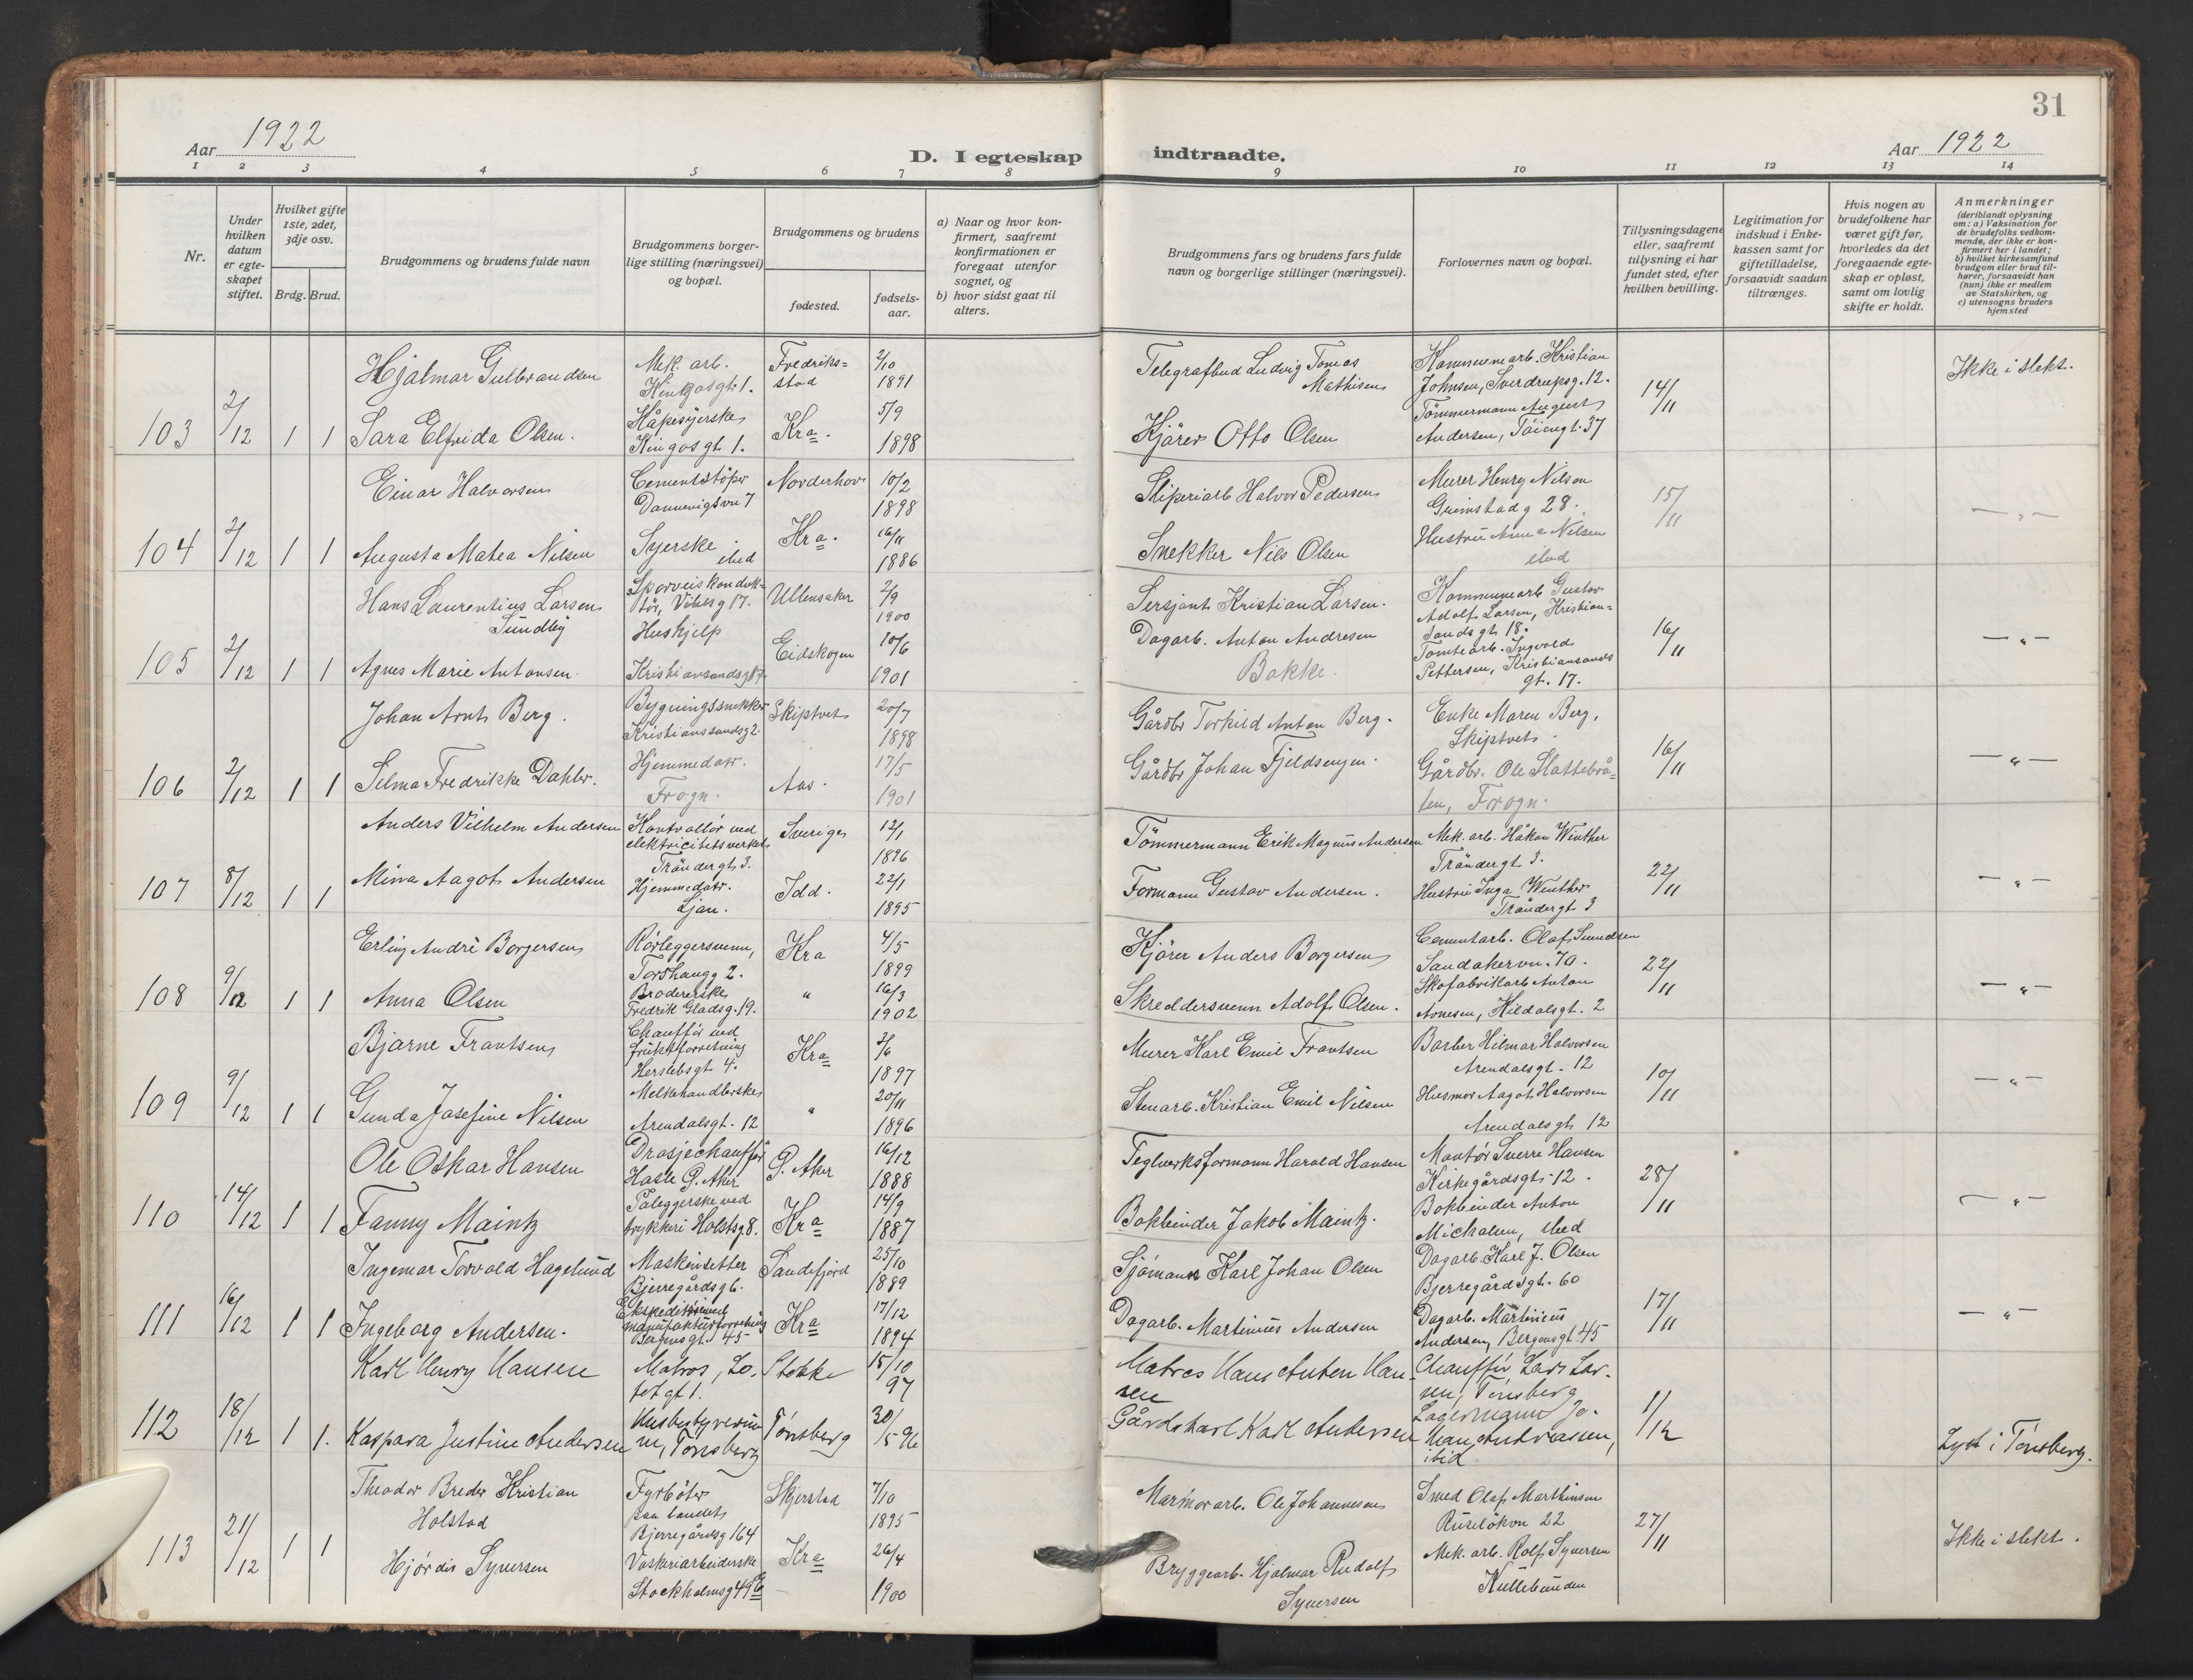 31
Aar 1922
D. I egteskap indtraadte.
Aar 1922
1 2 3 4 5 6 7 8 9 10 11 12 13 14
Nr.
Under hvilken datum er egteskapet stiftet.
Hvilket gifte 1ste, 2det, 3dje osv.
Brdg. Brud.
Brudgommens og brudens fulde navn
Brudgommens borgerlige stilling (næringsvei) og bopæl.
Brudgommens og brudens
fødested.
fødselsaar.
a) Naar og hvor konfirmert, saafremt konfirmationen er foregaat utenfor sognet, og
b) hvor sidst gaat til alters.
Brudgommens fars og brudens fars fulde navn og borgerlige stillinger (næringsvei).
Forlovernes navn og bopæl.
Tillysningsdagene eller, saafremt tillysning ei har fundet sted, efter hvilken bevilling.
Legitimation for indskud i Enkekassen samt for giftetilladelse, forsaavidt saadan tiltrænges.
Hvis nogen av brudefolkene har været gift før, hvorledes da det foregaaende egteskap er opløst, samt om lovlig skifte er holdt.
Anmerkninger
(deriblandt oplysning om: a) Vaksination for de brudefolks vedkommende, der ikke er konfirmert her i landet; b) hvilket kirkesamfund brudgom eller brud tilhører, forsaavidt han (hun) ikke er medlem av Statskirken, og c) utensogns bruders hjemsted
Hjalmar Gulbrandsen Mek. arb. Kingosgt. 1. Fredrikstad 2/10 1891 Telegrafbud Ludvig Tomas Mathisen Kommunearb. Kristian Johnsen, Sverdrupsg. 12. Ikke i slekt.
103 2/12 1 1 Sara Elfrida Olsen. Kåpesyerske Kingosgt 1. Kra. 5/9 1898 Kjører Otto Olsen Tömmermann August Andersen, Töiengt. 37 14/11
Einar Halvorsen Cementstöper Dannevigsvn 7 Norderhov 10/2 1898 Sliperiarb Halvor Pedersen Murer Henry Nilsen Grimstadg 28. 15/11 — „ —
104 2/12 1 1 Augusta Matea Nilsen Syerske ibid Kra. 16/11 1886 Snekker Nils Olsen Hustru Anna Nilsen ibid
Hans Laurentius Larsen Sundby Sporveiskonduktör, Vibesg 17. Ullensaker 2/9 1900 Sersjant Kristian Larsen. Kommunearb Gustav Adolf Larsen, Kristiansandsgt 18.
105 2/12 1 1 Agnes Marie Antonsen. Hushjelp Kristiansandsg 17 Eidskogen 10/6 1901 Dagarb. Anton Andresen Bakke. Tomtearb. Ingvald Pettersen, Kristiansands gt. 17. 16/11 — „ —
Johan Arnt Berg. Bygningssnekker Kristianssandsg 2. Skiptvet 20/7 1898 Gårdbr Torkild Anton Berg. Enke Maren Berg, Skiptvet.
106 2/12 1 1 Selma Fredrikke Dahler. Hjemmedatr. Frogn. Aas. 17/5 1901 Gårdbr Johan Fjeldsengen. Gårdbr. Ole Slattebråten, Frogn. 16/11 — „ —
Anders Vilhelm Andersen Kontrollör ved elektricitetsverket Tröndergt 3. Sverige 12/1 1896 Tömmermann Erik Magnus Andersen Mek. arb. Håkon Winther Tröndergt 3.
107 8/12 1 1 Mina Aagot Andersen Hjemmedatr. Ljan. Idd. 22/1 1895 Formann Gustav Andersen. Hustru Inga Winther Tröndergt 3 22/11 — „ —
Erling André Borgersen Rörleggersvenn, Torshaugg 2. Kra 4/5 1899 Kjörer Anders Borgersen Cementarb. Olaf Svendsen Sandakervn. 70.
108 9/12 1 1 Anna Olsen Brodererske Fredrik Gladsg. 19. „ 16/3 1902 Skreddersvenn Adolf Olsen. Skofabrikarb Anton Arnesen, Hildalsgt. 2 22/11 — „ —
Bjarne Frantsen Chauffør ved fruktforretning Herslebsgt 4. Kra 2/6 1897 Murer Karl Emil Frantsen Barber Hilmar Halvorsen Arendalsgt. 12
109 9/12 1 1 Gunda Josefine Nilsen Melkehandlerske Arendalsgt. 12 „ 20/11 1896 Stenarb. Kristian Emil Nilsen Husmor Aagot Halvorsen Arendalsgt 12 10/11 — „ —
Ole Oskar Hansen Drosjechauffør Hasle Ö. Aker Ö. Aker 16/12 1888 Teglverksformann Harald Hansen Montör Sverre Hansen Kirkegårdsgt. 12.
110 14/12 1 1 Fanny Maintz Påleggerske ved trykkeri Holstsg 8. Kra 14/9 1887 Bokbinder Jakob Maintz. Bokbinder Anton Michalsen, ibid 28/11 — „ —
Ingemar Torvald Hagelund Maskinsetter Bjerregårdsg 6. Sandefjord 25/10 1889 Sjömann Karl Johan Olsen Dagarb. Karl J. Olsen Bjerregårdsgt. 60
111 16/12 1 1 Ingeborg Andersen. Ekspeditrise ved manufakturforretning Bergensgt. 45 Kra 17/12 1894 Dagarb. Martinius Andersen Dagarb. Martinius Andersen, Bergensgt 45 17/11 — „ —
Karl Henry Hansen Matros, Lotetgt 1. Stokke 15/10 97 Matros Hans Anton Hansen Chauffør Lars Larsen, Tønsberg
112 18/12 1 1. Kaspara Justine Andersen Husbestyrerinne, Tønsberg Tønsberg 30/5 96 Gårdskarl Karl Andersen Lagermann Johan Andreassen, ibid 1/12 Lyst i Tønsberg.
Theodor Breder Kristian Holstad Fyrböter paa landet Bjerregårdsg 164 Skjerstad 7/10 1895 Marmorarb. Ole Johannesen Smed Olaf Marthinsen Ruselökvn 22
113 21/12 1 1 Hjørdis Syversen Vaskeriarbeiderske Stockholmsg 49 Kra 26/4 1900 Bryggearb. Hjalmar Rudolf Syversen Mek. arb. Rolf Syversen Kullebunden 27/11 Ikke i slekt.